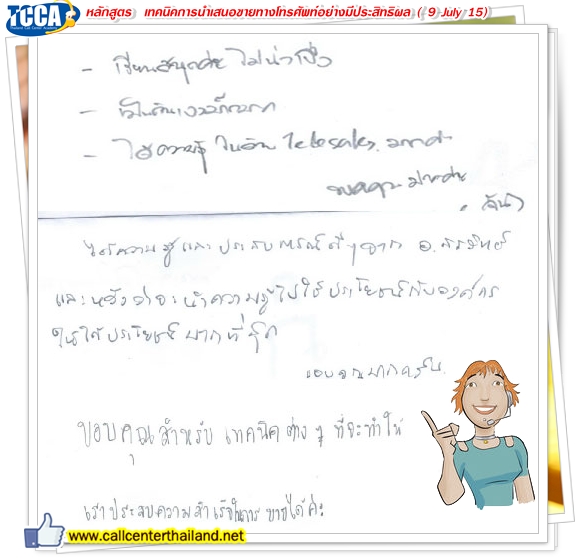 TCCA
Thailand Call Center Academy
หลักสูตร เทคนิคการนำเสนอขายทางโทรศัพท์อย่างมีประสิทธิผล ( 9 July 15)
- เรียนสนุกค่ะ ไม่น่าเบื่อ
- เป็นกันเอง
- ได้ความรู้ ในด้าน Telesales มากค่ะ
ขอบคุณ มากค่ะ
ได้ความรู้ และ ประสบการณ์ดี ๆ จาก อ.
และหวังว่าจะนำความรู้ไปใช้ประโยชน์กับองค์กร
ให้ได้ประโยชน์ มากที่สุด
ขอบคุณมากครับ
ขอบคุณสำหรับ เทคนิคต่าง ๆ ที่จะทำให้
เราประสบความสำเร็จในการ ขายได้ค่ะ
www.callcenterthailand.net